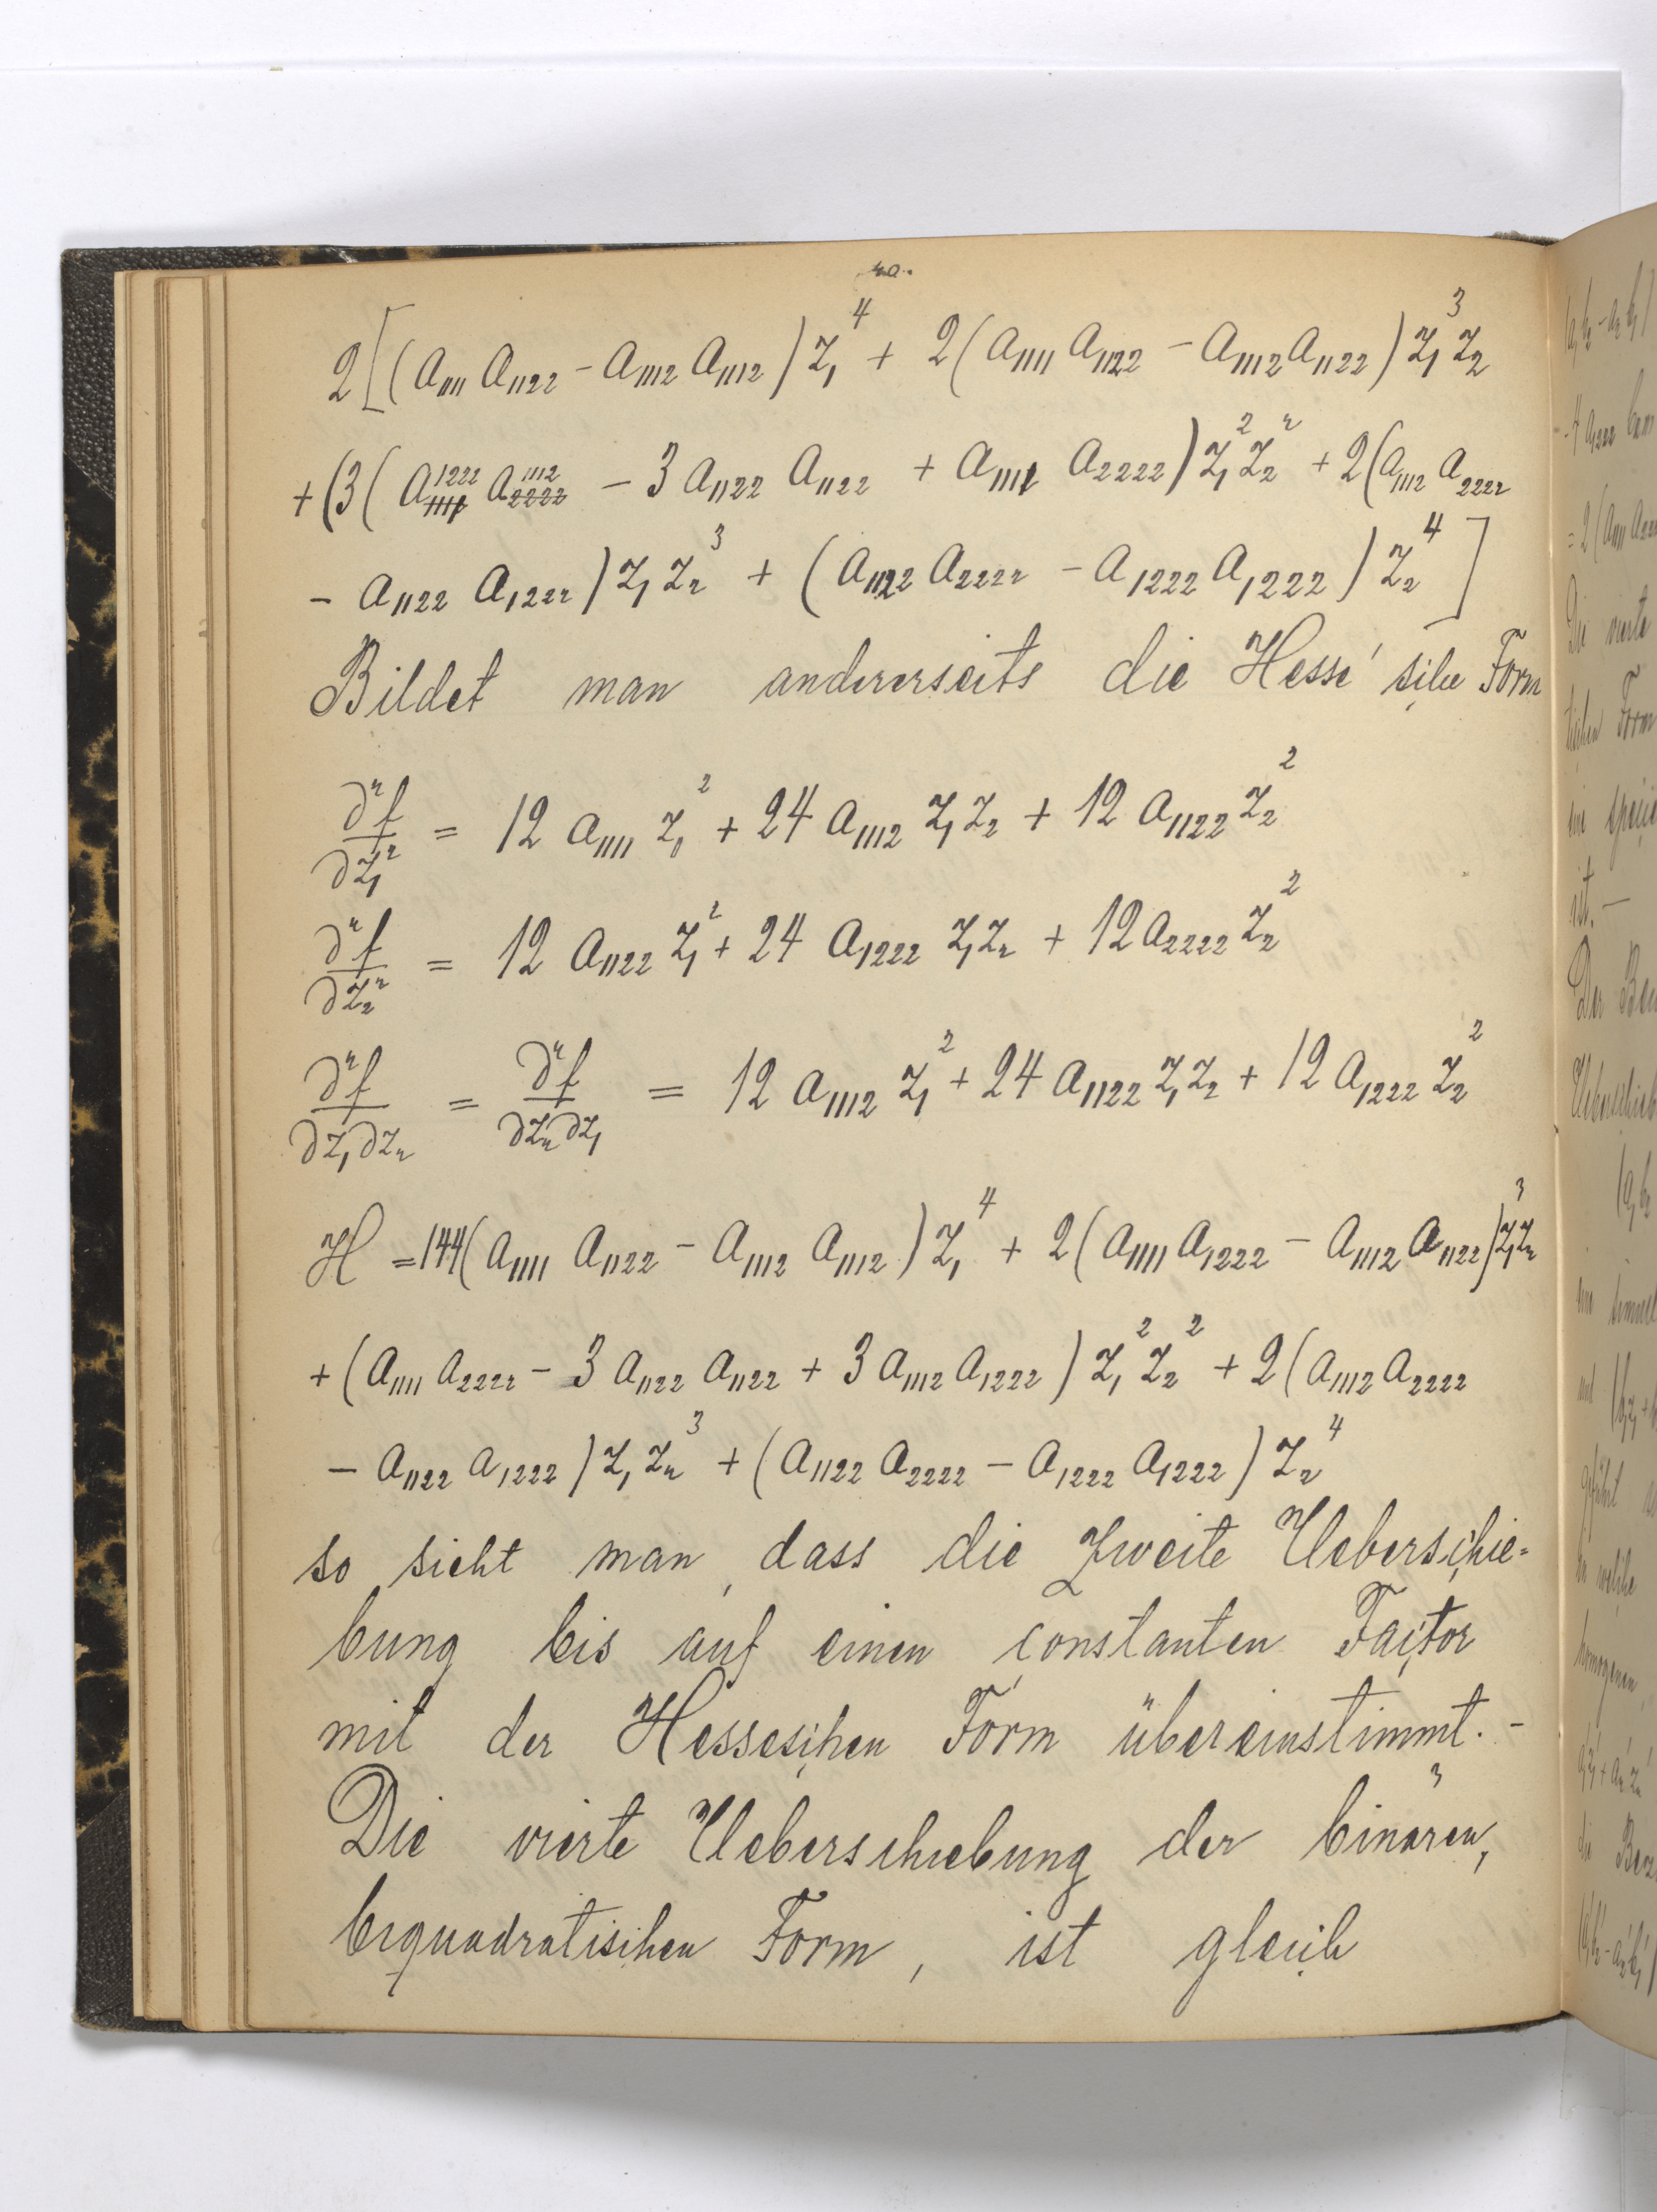 2[(a₁₁₁₁ a₁₁₂₂ − a₁₁₁₂ a₁₁₁₂) z₁⁴ + 2(a₁₁₁₁ a₁₁₂₂ − a₁₁₁₂ a₁₁₂₂) z₁³ z₂
+ (3( a₁₂₂₂ a₁₁₁₂ − 3 a₁₁₂₂ a₁₁₂₂ + a₁₁₁₁ a₂₂₂₂) z₁² z₂² + 2(a₁₁₁₂ a₂₂₂₂
− a₁₁₂₂ a₁₂₂₂) z₁ z₂³ + (a₁₁₂₂ a₂₂₂₂ − a₁₂₂₂ a₁₂₂₂) z₂⁴]
Bildet man andererseits die Hesse'sche Form
∂²f/∂z₁² = 12 a₁₁₁₁ z₁² + 24 a₁₁₁₂ z₁z₂ + 12 a₁₁₂₂ z₂²
∂²f/∂z₂² = 12 a₁₁₂₂ z₁² + 24 a₁₂₂₂ z₁z₂ + 12 a₂₂₂₂ z₂²
∂²f/∂z₁∂z₂ = ∂²f/∂z₂∂z₁ = 12 a₁₁₁₂ z₁² + 24 a₁₁₂₂ z₁z₂ + 12 a₁₂₂₂ z₂²
H = 144(a₁₁₁₁ a₁₁₂₂ − a₁₁₁₂ a₁₁₁₂) z₁⁴ + 2(a₁₁₁₁ a₁₂₂₂ − a₁₁₁₂ a₁₁₂₂) z₁³z₂
+ (a₁₁₁₁ a₂₂₂₂ − 3 a₁₁₂₂ a₁₁₂₂ + 3 a₁₁₁₂ a₁₂₂₂) z₁² z₂² + 2(a₁₁₁₂ a₂₂₂₂
− a₁₁₂₂ a₁₂₂₂) z₁ z₂³ + (a₁₁₂₂ a₂₂₂₂ − a₁₂₂₂ a₁₂₂₂) z₂⁴
so sieht man, dass die zweite Ueberschie=
bung bis auf einen constanten Factor
mit der Hesseschen Form übereinstimmt. -
Die vierte Ueberschiebung der binären,
biquadratischen Form, ist gleich